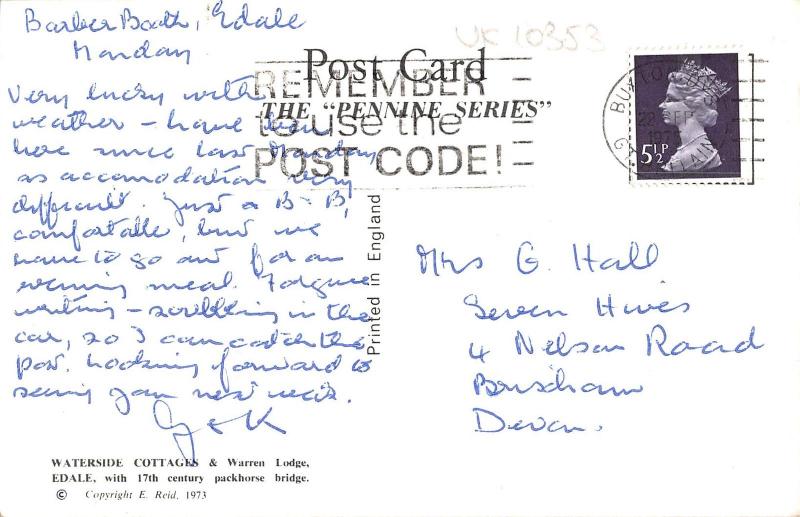 Barber Booth, Edale
Monday
Very lucky with
weather - have been
here since last Monday
as accomodation very
difficult. Just a B-B,
comfortable, but we
have to go out for an
evening meal. Forgive
writing - scribbling in the
car, so I can catch the
post. Looking forward to
seeing you next week.
G & K
WATERSIDE COTTAGES & Warren Lodge,
EDALE, with 17th century packhorse bridge.
© Copyright E. Reid, 1973
UK 10353
Post Card
THE "PENNINE SERIES"
REMEMBER
to use the
POST CODE!
Printed in England
BUXTON
22 SEP
197
5½P
Mrs G. Hall
Seven Hives
4 Nelson Road
Brixham
Devon.